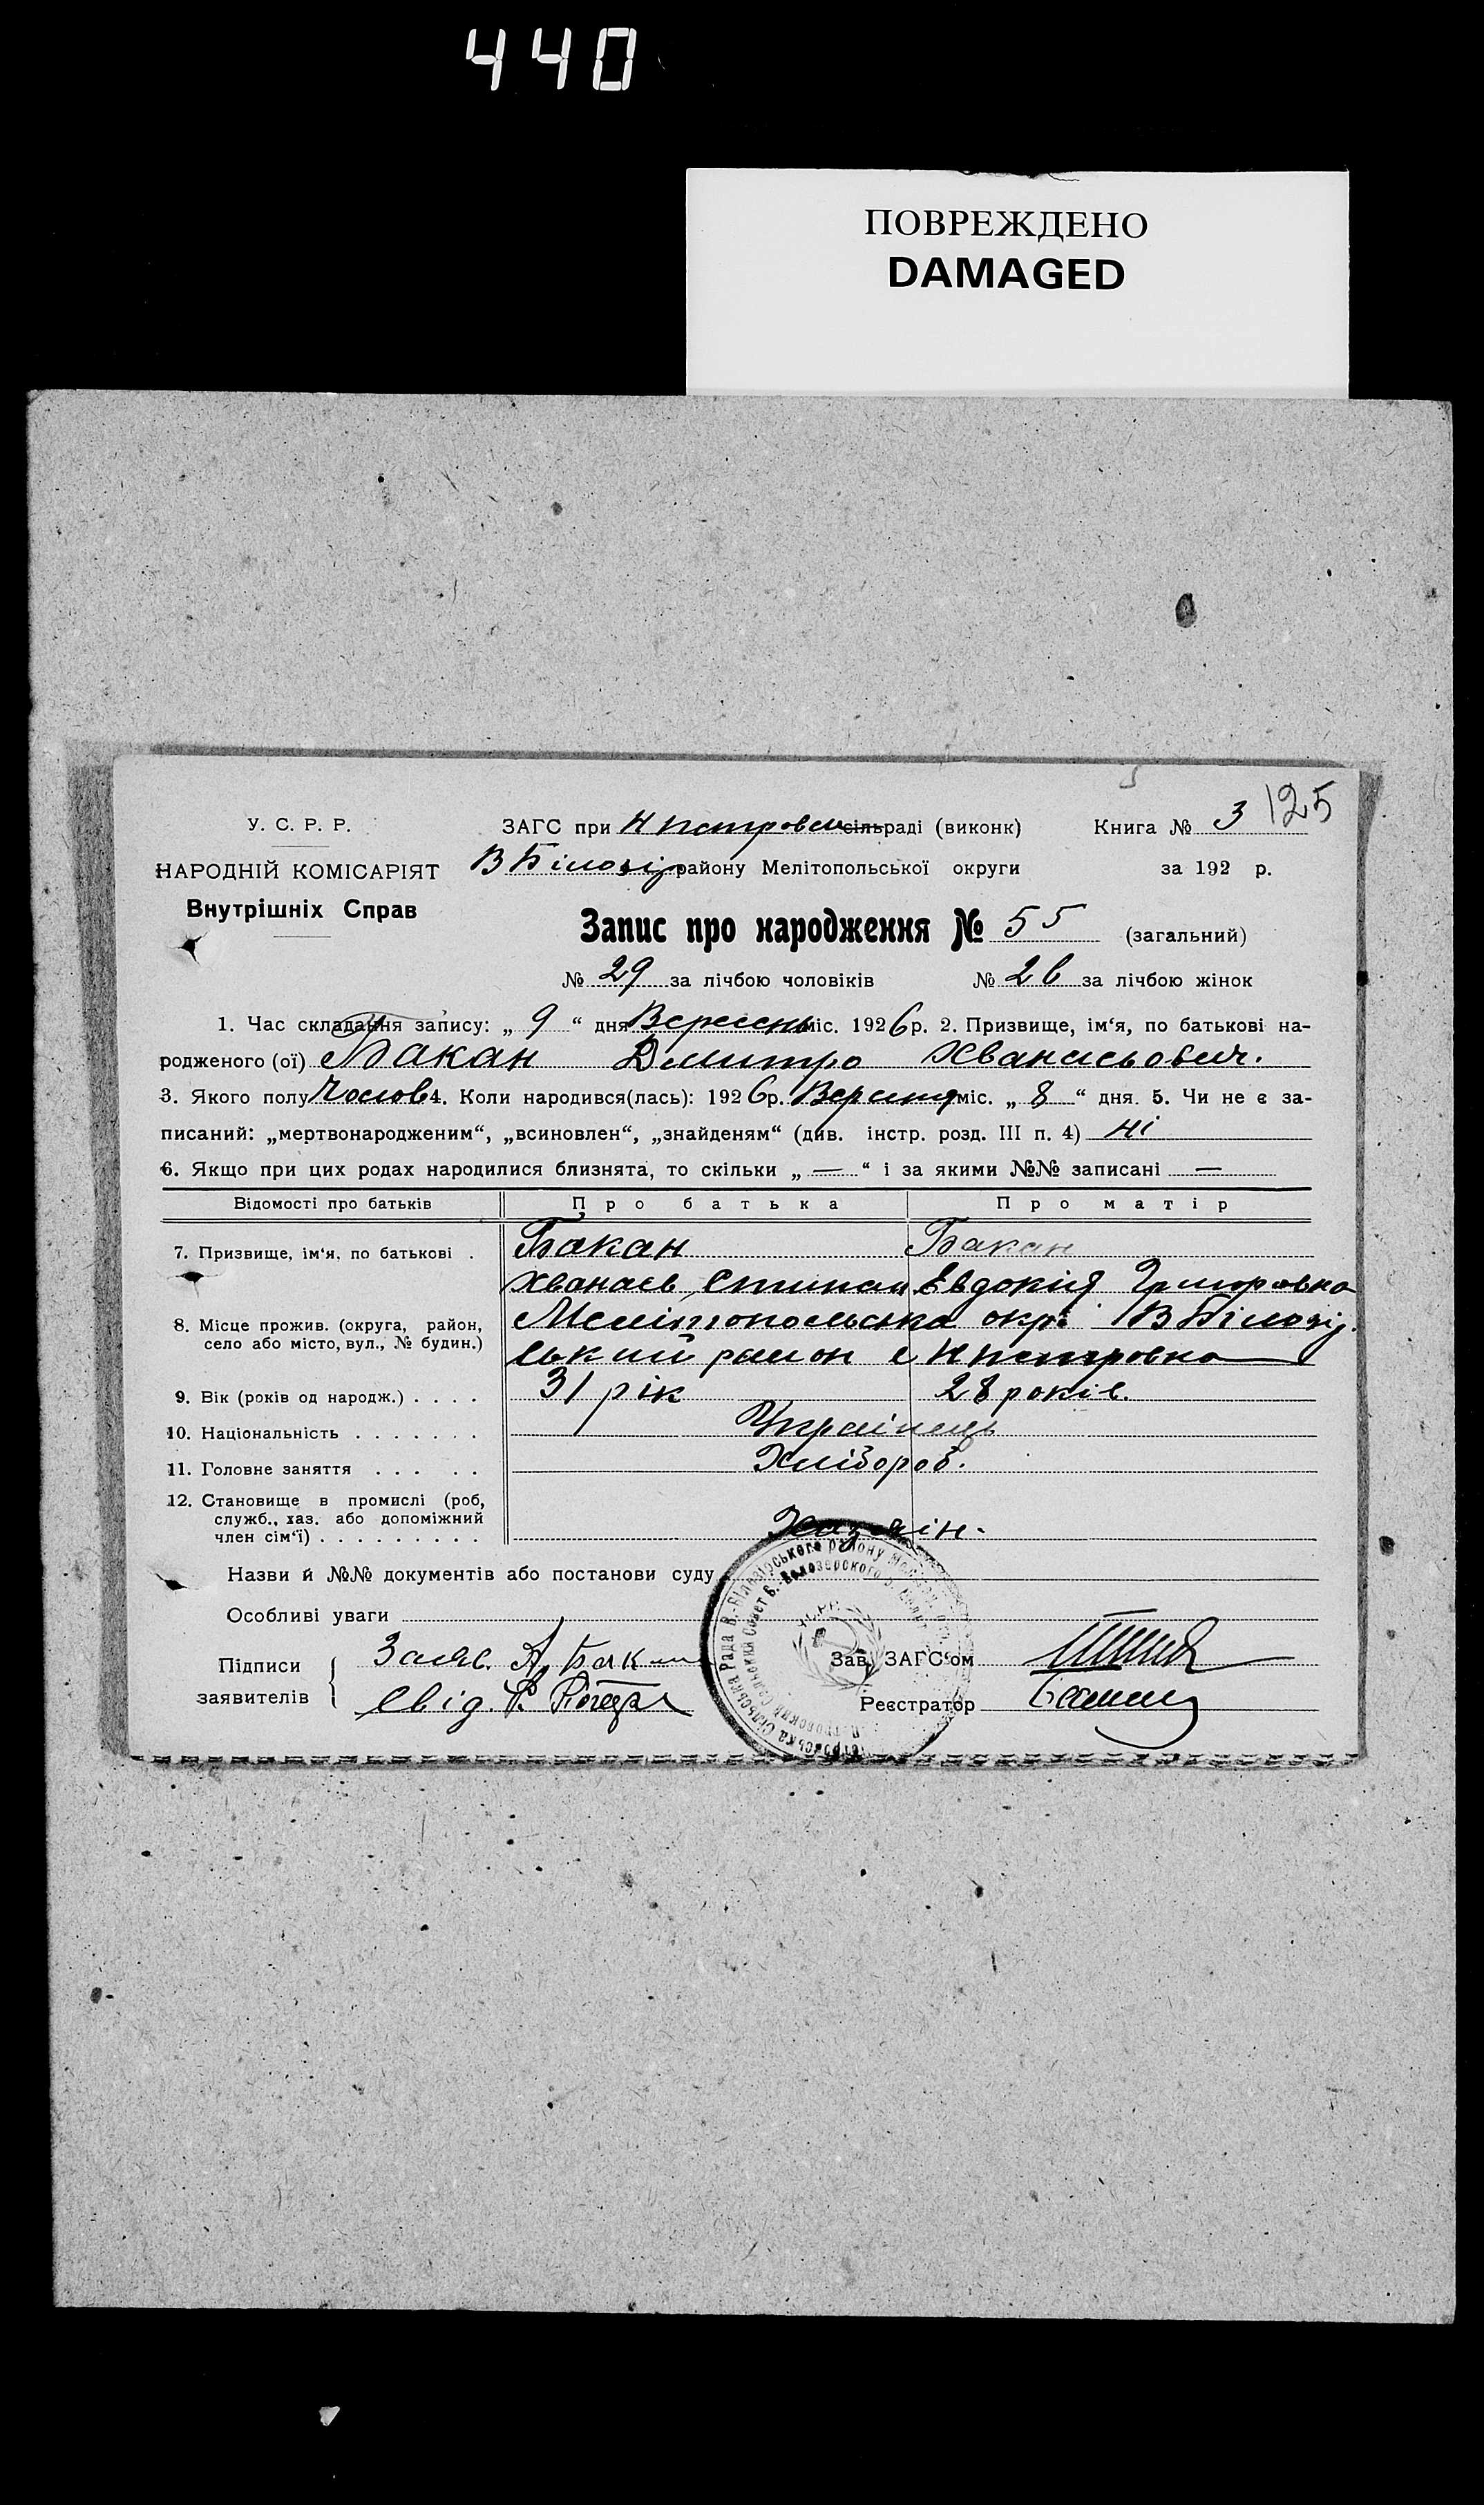 440
ПОВРЕЖДЕНО
DAMAGED
125
У. С. Р. Р. ЗАГС при Н Петровсільраді (виконк) Книга № 3
НАРОДНІЙ КОМІСАРІЯТ В Білозір району Мелітопольської округи за 192 р.
Внутрішніх Справ
Запис про народження № 55 (загальний)
№ 29 за лічбою чоловіків № 26 за лічбою жінок
1. Час складання запису: „ 9 “ дня Вересень міс. 1926 р. 2. Призвище, ім‘я, по батькові на-
родженого (ої) Бакан Дмитро Хванасьович.
3. Якого полу Чолов 4. Коли народився(лась): 1926 р. Вересня міс. „ 8 “ дня. 5. Чи не є за-
писаний: „мертвонародженим“, „всиновлен“, „знайденям“ (див. інстр. розд. III п. 4) ні
6. Якщо при цих родах народилися близнята, то скільки „ — “ і за якими №№ записані —
Відомості про батьків Про батька Про матір
7. Призвище, ім‘я, по батькові . Бакан Бакан
Хванасъ Степан Евдокія Григоровна
8. Місце прожив. (округа, район, Мелітопольська окр. В Білозір
село або місто, вул., № будин.) ський район с Н Петровка
9. Вік (років од народж.) . . . . 31 рік 28 років.
10. Національність . . . . . . . Українець
11. Головне заняття . . . . . Хлібороб.
12. Становище в промислі (роб,
служб., хаз. або допоміжний
член сім‘ї) . . . . . . . . . Хазяїн.
Назви й №№ документів або постанови суду
Особливі уваги
Підписи Заяв. А Бакан Зав. ЗАГС‘ом
заявителів Свід. Реєстратор